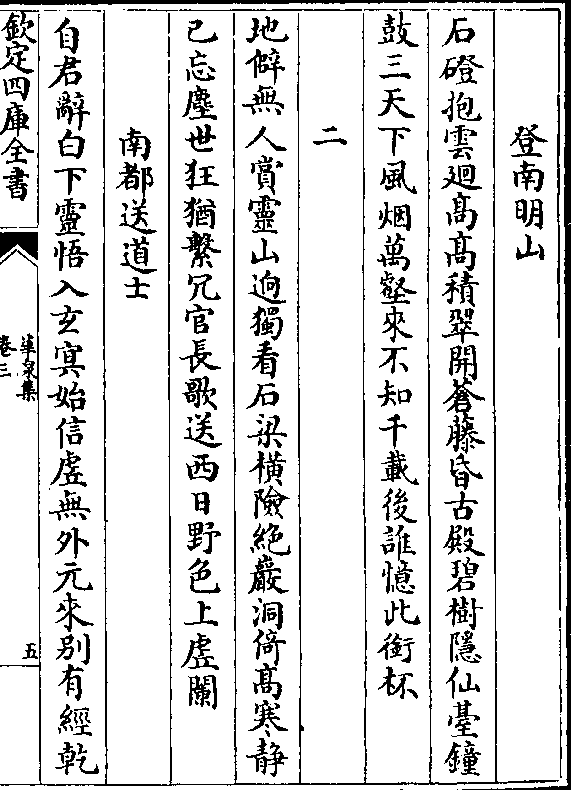 登南明山
石磴抱雲廻髙髙積翠開蒼藤昏古殿碧樹隱仙臺鐘
鼓三天下風烟萬壑來不知千載後誰憶此銜杯
二
地僻無人賞靈山逈獨看石梁横險絶巖洞倚髙寒静
已忘塵世狂猶繫冗官長歌送西日野色上虚闌
南都送道士
自君辭白下靈悟入玄㝠始信虚無外元來别有經乾
欽定四庫全書
卷三
五